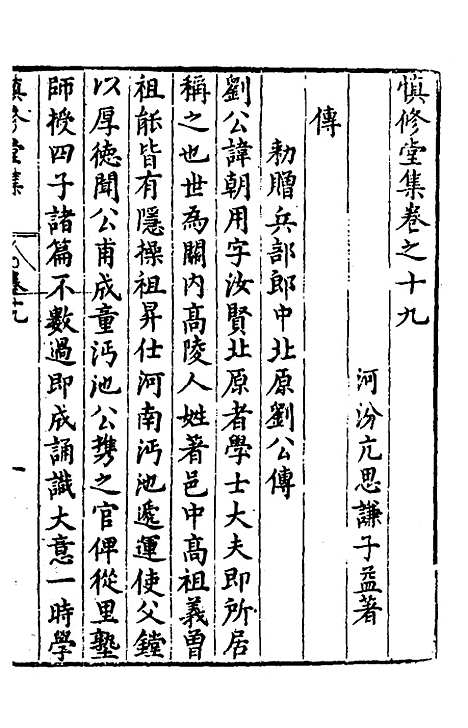 慎修堂集卷之十九
河汾亢思謙子益著
傳
勑贈兵部郎中北原劉公傳
劉公諱朝用字汝賢北原者學士大夫即所居
稱之也世為關內高陵人姓著邑中高祖義曽
祖能皆有隱操祖昇仕河南沔池遞運使父鏜
以厚徳聞公甫成童沔池公携之官俾從里塾
師授四子諸篇不數過即成誦識大意一時學
慎修堂集
卷十九
一